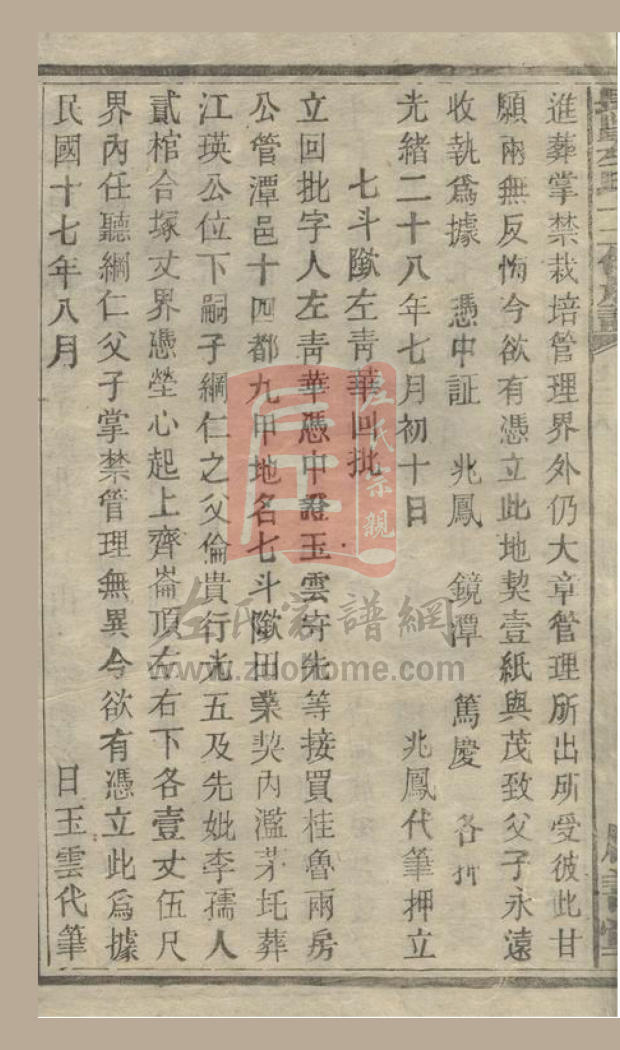 進葬掌禁栽培管理界外仍大章管理所出所受彼此甘
願兩無反悔今欲有憑立此地契壹紙與茂致父子永遠
收執爲據 憑中証 兆鳳 鏡潭 篤慶 各押
光緒二十八年七月初十日 兆鳳代筆押立
七斗隞左靑華回批
立回批字人左靑華憑中證玉雲守先等接買桂魯兩房
公管潭邑十四都九甲地名七斗隞田業契內濫茅圫葬
江瑛公位下嗣子綱仁之父倫貴行光五及先妣李孺人
貳棺合塚丈界憑塋心起上齊崙頂左右下各壹丈伍尺
界內任聽綱仁父子掌禁管理無異今欲有憑立此爲據
民國十七年八月 日玉雲代筆
左氏宗親
左氏家譜網
www.zuotome.com